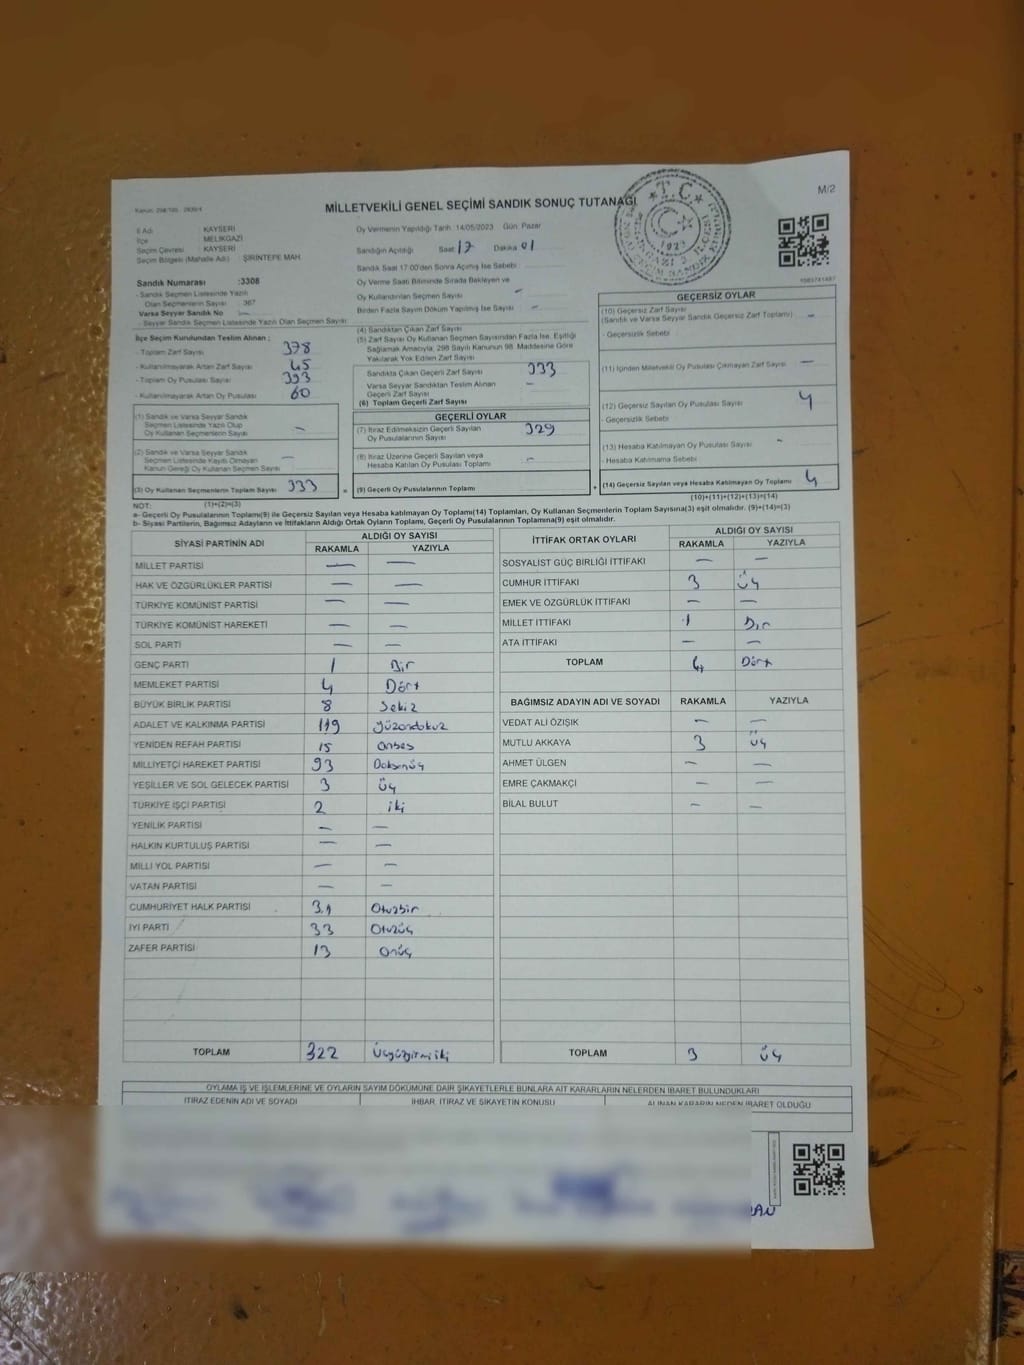 M/2
MİLLETVEKİLİ GENEL SEÇİMİ SANDIK SONUÇ TUTANAĞI
T.C.
İl Adı KAYSERİ
İlçe MELİKGAZİ
Seçim Çevresi KAYSERİ
Seçim Bölgesi (Mahalle Adı) ŞİRİNTEPE MAH
Sandık Numarası :3308
- Sandık Seçmen Listesinde Yazılı
Olan Seçmenlerin Sayısı : 367
Varsa Seyyar Sandık No —
- Seyyar Sandık Seçmen Listesinde Yazılı Olan Seçmen Sayısı
İlçe Seçim Kurulundan Teslim Alınan ;
- Toplam Zarf Sayısı 378
- Kullanılmayarak Artan Zarf Sayısı 45
- Toplam Oy Pusulası Sayısı 393
- Kullanılmayarak Artan Oy Pusulası 60
(1) Sandık ve Varsa Seyyar Sandık
Seçmen Listesinde Yazılı Olup
Oy Kullanan Seçmenlerin Sayısı —
(2) Sandık ve Varsa Seyyar Sandık
Seçmen Listesinde Kayıtlı Olmayan
Kanun Gereği Oy Kullanan Seçmen Sayısı —
(3) Oy Kullanan Seçmenlerin Toplam Sayısı 333
(1)+(2)=(3)
Oy Vermenin Yapıldığı Tarih 14/05/2023 Gün Pazar
Sandığın Açıldığı Saat 17 Dakika 01
Sandık Saat 17:00'den Sonra Açılmış İse Sebebi
Oy Verme Saati Bitiminde Sırada Bekleyen ve
Oy Kullandırılan Seçmen Sayısı —
Birden Fazla Sayım Döküm Yapılmış İse Sayısı —
(4) Sandıktan Çıkan Zarf Sayısı
(5) Zarf Sayısı Oy Kullanan Seçmen Sayısından Fazla İse, Eşitliği
Sağlamak Amacıyla; 298 Sayılı Kanunun 98. Maddesine Göre
Yakılarak Yok Edilen Zarf Sayısı
Sandıkta Çıkan Geçerli Zarf Sayısı 333
Varsa Seyyar Sandıktan Teslim Alınan
Geçerli Zarf Sayısı —
(6) Toplam Geçerli Zarf Sayısı
GEÇERLİ OYLAR
(7) İtiraz Edilmeksizin Geçerli Sayılan
Oy Pusulalarının Sayısı 329
(8) İtiraz Üzerine Geçerli Sayılan veya
Hesaba Katılan Oy Pusulası Toplamı —
= (9) Geçerli Oy Pusulalarının Toplamı +
GEÇERSİZ OYLAR
(10) Geçersiz Zarf Sayısı
(Sandık ve Varsa Seyyar Sandık Geçersiz Zarf Toplamı) —
- Geçersizlik Sebebi
(11) İçinden Milletvekili Oy Pusulası Çıkmayan Zarf Sayısı —
(12) Geçersiz Sayılan Oy Pusulası Sayısı 4
- Geçersizlik Sebebi
(13) Hesaba Katılmayan Oy Pusulası Sayısı -
- Hesaba Katılmama Sebebi
(14) Geçersiz Sayılan veya Hesaba Katılmayan Oy Toplamı 4
(10)+(11)+(12)+(13)=(14)
NOT:
a- Geçerli Oy Pusulalarının Toplamı(9) ile Geçersiz Sayılan veya Hesaba katılmayan Oy Toplamı(14) Toplamları, Oy Kullanan Seçmenlerin Toplam Sayısına(3) eşit olmalıdır. (9)+(14)=(3)
b- Siyasi Partilerin, Bağımsız Adayların ve İttifakların Aldığı Ortak Oyların Toplamı, Geçerli Oy Pusulalarının Toplamına(9) eşit olmalıdır.
SİYASİ PARTİNİN ADI ALDIĞI OY SAYISI
RAKAMLA YAZIYLA
MİLLET PARTİSİ — —
HAK VE ÖZGÜRLÜKLER PARTİSİ — —
TÜRKİYE KOMÜNİST PARTİSİ — —
TÜRKİYE KOMÜNİST HAREKETİ — —
SOL PARTİ — —
GENÇ PARTİ 1 Bir
MEMLEKET PARTİSİ 4 Dört
BÜYÜK BİRLİK PARTİSİ 8 Sekiz
ADALET VE KALKINMA PARTİSİ 119 Yüzondokuz
YENİDEN REFAH PARTİSİ 15 Onbeş
MİLLİYETÇİ HAREKET PARTİSİ 93 Doksanüç
YEŞİLLER VE SOL GELECEK PARTİSİ 3 Üç
TÜRKİYE İŞÇİ PARTİSİ 2 iki
YENİLİK PARTİSİ — —
HALKIN KURTULUŞ PARTİSİ — —
MİLLİ YOL PARTİSİ — —
VATAN PARTİSİ — —
CUMHURİYET HALK PARTİSİ 31 Otuzbir
İYİ PARTİ 33 Otuzüç
ZAFER PARTİSİ 13 Onüç
TOPLAM 322 Üçyüzyirmiiki
İTTİFAK ORTAK OYLARI ALDIĞI OY SAYISI
RAKAMLA YAZIYLA
SOSYALİST GÜÇ BİRLİĞİ İTTİFAKI — —
CUMHUR İTTİFAKI 3 Üç
EMEK VE ÖZGÜRLÜK İTTİFAKI — —
MİLLET İTTİFAKI 1 Bir
ATA İTTİFAKI — —
TOPLAM 4 Dört
BAĞIMSIZ ADAYIN ADI VE SOYADI RAKAMLA YAZIYLA
VEDAT ALİ ÖZIŞIK — —
MUTLU AKKAYA 3 Üç
AHMET ÜLGEN — —
EMRE ÇAKMAKÇİ — —
BİLAL BULUT — —
TOPLAM 3 Üç
OYLAMA İŞ VE İŞLEMLERİNE VE OYLARIN SAYIM DÖKÜMÜNE DAİR ŞİKAYETLERLE BUNLARA AİT KARARLARIN NELERDEN İBARET BULUNDUKLARI
İTİRAZ EDENİN ADI VE SOYADI İHBAR, İTİRAZ VE ŞİKAYETİN KONUSU ALINAN KARARIN NEDEN İBARET OLDUĞU